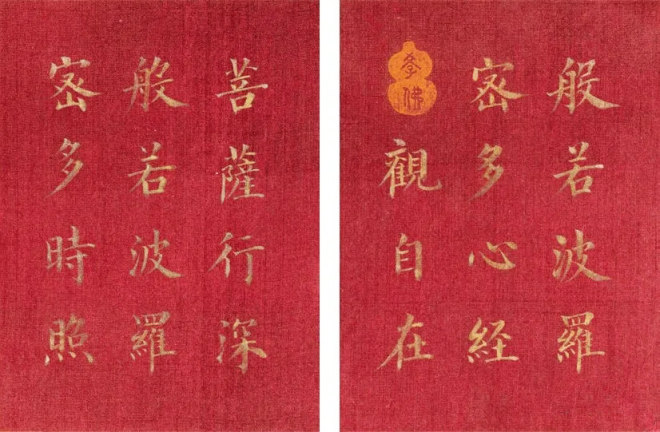 般若波羅
密多心経
觀自在
菩薩行深
般若波羅
密多時照